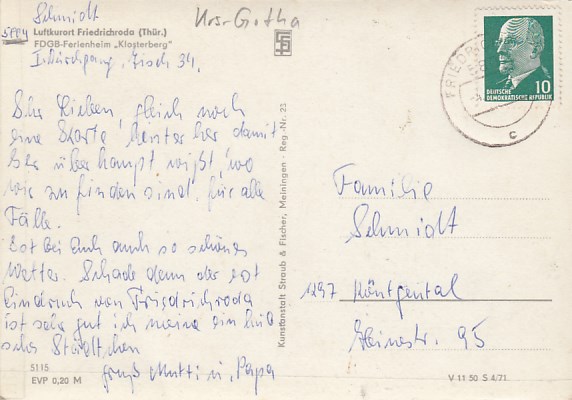 Schmidt
Krs-Gotha
5804 Luftkurort Friedrichroda (Thür.)
FDGB-Ferienheim „Klosterberg"
Tisch 34.
Ihr Lieben, gleich noch
eine Karte hinterher damit
Ihr überhaupt wißt, wo
wir zu finden sind, für alle
Fälle.
Ist bei Euch auch so schönes
Wetter. Schade denn der
Eindruck von Friedrichroda
ist sehr gut ich meine ein hüb
sches Städtchen
Gruß Mutti u. Papa
5115
EVP 0,20 M
Kunstanstalt Straub & Fischer, Meiningen · Reg.-Nr. 23
DEUTSCHE
DEMOKRATISCHE REPUBLIK
10
FRIEDRICH
c
Familie
Schmidt
1297 Röntgental
Heinestr. 95
V 11 50 S 4/71